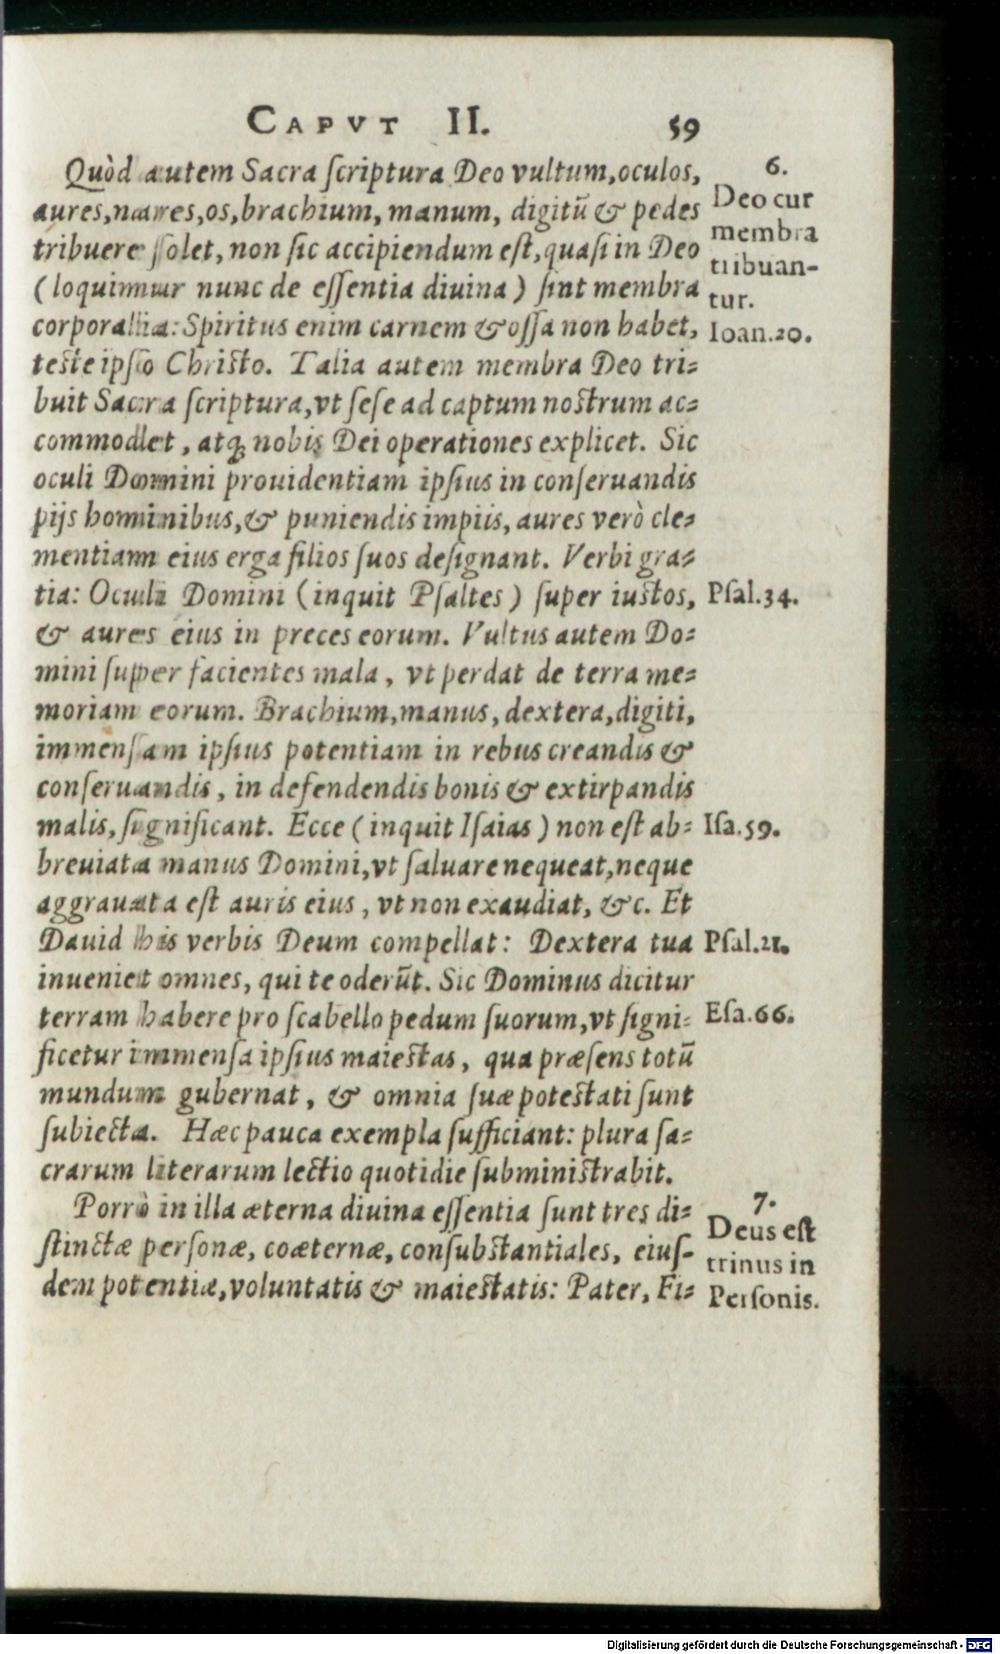 CAPVT II. 59
Quòd autem Sacra ſcriptura Deo vultum, oculos,
aures, nares, os, brachium, manum, digitũ & pedes
tribuere ſolet, non ſic accipiendum eſt, quaſi in Deo
(loquimur nunc de eſſentia diuina) ſint membra
corporalia: Spiritus enim carnem & oſſa non habet,
teſte ipſo Chriſto. Talia autem membra Deo tri-
buit Sacra ſcriptura, vt ſeſe ad captum noſtrum ac-
commodet, atq; nobis Dei operationes explicet. Sic
oculi Domini prouidentiam ipſius in conſeruandis
pijs hominibus, & puniendis impiis, aures verò cle-
mentiam eius erga filios ſuos deſignant. Verbi gra-
tia: Oculi Domini (inquit Pſaltes) ſuper iuſtos,
& aures eius in preces eorum. Vultus autem Do-
mini ſuper facientes mala, vt perdat de terra me-
moriam eorum. Brachium, manus, dextera, digiti,
immenſam ipſius potentiam in rebus creandis &
conſeruandis, in defendendis bonis & extirpandis
malis, ſignificant. Ecce (inquit Iſaias) non eſt ab-
breuiata manus Domini, vt ſaluare nequeat, neque
aggrauata eſt auris eius, vt non exaudiat, &c. Et
Dauid his verbis Deum compellat: Dextera tua
inueniet omnes, qui te oderũt. Sic Dominus dicitur
terram habere pro ſcabello pedum ſuorum, vt ſigni-
ficetur immenſa ipſius maieſtas, qua præſens totũ
mundum gubernat, & omnia ſuæ poteſtati ſunt
ſubiecta. Hæc pauca exempla ſufficiant: plura ſa-
crarum literarum lectio quotidie ſubminiſtrabit.
Porrò in illa æterna diuina eſſentia ſunt tres di-
ſtinctæ perſonæ, coæternæ, conſubſtantiales, eiuſ-
dem potentiæ, voluntatis & maieſtatis: Pater, Fi-
6.
Deo cur
membra
tribuan-
tur.
Ioan.20.
Pſal.34.
Iſa.59.
Pſal.21.
Eſa.66.
7.
Deus eſt
trinus in
Perſonis.
Digitalisierung gefördert durch die Deutsche Forschungsgemeinschaft - DFG